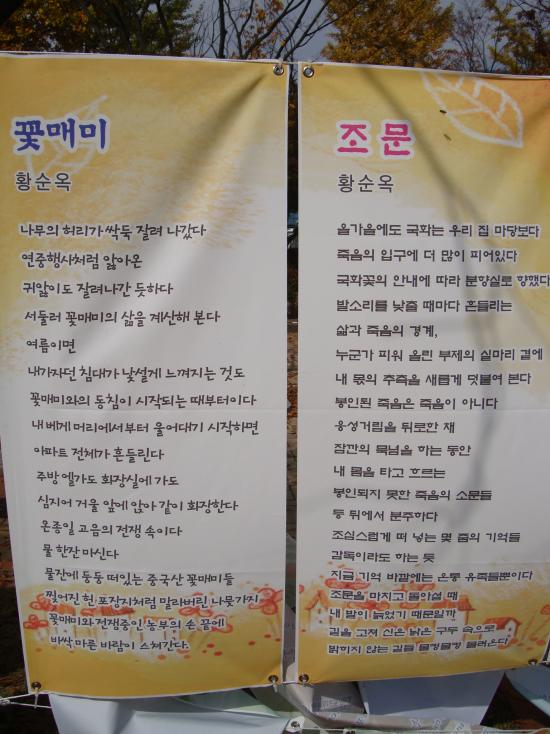 꽃매미
황순옥
나무의 허리가 싹둑 잘려 나갔다
연중행사처럼 앓아온
귀앓이도 잘려나간 듯하다
서둘러 꽃매미의 삶을 계산해 본다
여름이면
내가자던 침대가 낯설게 느껴지는 것도
꽃매미와의 동침이 시작되는 때부터이다
내 베게 머리에서부터 울어대기 시작하면
아파트 전체가 흔들린다
주방엘가도 화장실에 가도
심지어 거울 앞에 앉아 같이 화장한다
온종일 고음의 전쟁 속이다
물 한잔 마신다
물잔에 둥둥 떠있는 중국산 꽃매미들
찢어진 헌 포장지처럼 말라버린 나뭇가지
꽃매미와 전쟁중인 농부의 손 끝에
바싹 마른 바람이 스쳐간다.
조문
황순옥
올가을에도 국화는 우리 집 마당보다
죽음의 입구에 더 많이 피어있다
국화꽃의 안내에 따라 분향실로 향했다
발소리를 낮출 때마다 흔들리는
삶과 죽음의 경계,
누군가 피워 올린 부제의 실마리 곁에
내 몫의 추측을 새롭게 덧붙여 본다
봉인된 죽음은 죽음이 아니다
웅성거림을 뒤로한 채
잠깐의 묵념을 하는 동안
내 몸을 타고 흐르는
봉인되지 못한 죽음의 소문들
등 뒤에서 분주하다
조심스럽게 떠 넣는 몇 줌의 기억들
감독이라도 하는 듯
지금 기억 바깥에는 온통 유족들뿐이다
조문을 마치고 돌아설 때
내 발이 늙었기 때문일까
길을 고쳐 신은 낡은 구두 속으로
밝히지 않는 길들 물렁물렁 몰려온다